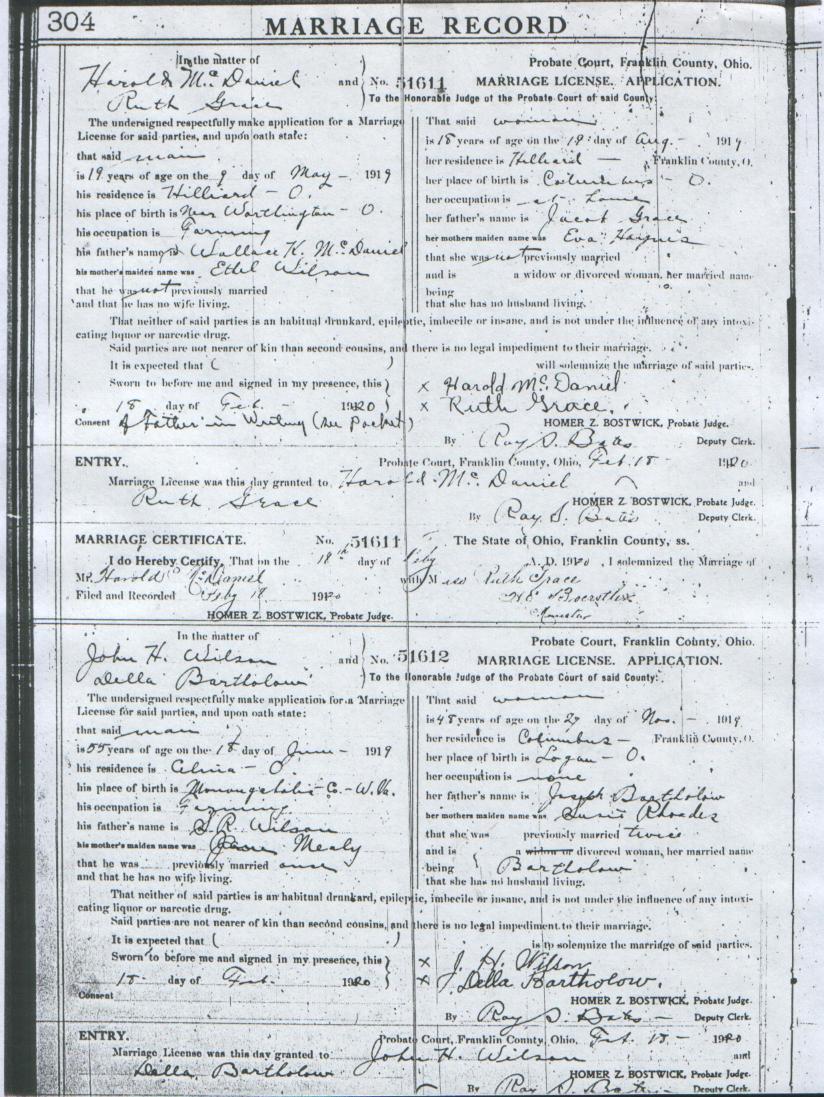 304 MARRIAGE RECORD
In the matter of
Harold McDaniel
Ruth Grace
and } No. 51611
Probate Court, Franklin County, Ohio.
MARRIAGE LICENSE. APPLICATION.
To the Honorable Judge of the Probate Court of said County:
The undersigned respectfully make application for a Marriage
License for said parties, and upon oath state:
that said man
is 19 years of age on the 9 day of May - 1919
his residence is Hilliard - O.
his place of birth is Near Worthington - O.
his occupation is Farming
his father's name is Wallace K. McDaniel
his mother's maiden name was Ethel Wilson
that he was not previously married
and that he has no wife living.
That said woman
is 18 years of age on the 19 day of Aug. - 1919
her residence is Hilliard - Franklin County, O.
her place of birth is Columbus - O.
her occupation is at home
her father's name is Jacob Grace
her mothers maiden name was Eva Haynes
that she was not previously married
and is a widow or divorced woman, her married name
being
that she has no husband living.
That neither of said parties is an habitual drunkard, epileptic, imbecile or insane, and is not under the influence of any intoxi-
cating liquor or narcotic drug.
Said parties are not nearer of kin than second cousins, and there is no legal impediment to their marriage.
It is expected that ( ) will solemnize the marriage of said parties.
Sworn to before me and signed in my presence, this }
18 day of Feb. - 1920
x Harold McDaniel
x Ruth Grace.
Consent of Father in Writing (See Packet)
HOMER Z. BOSTWICK, Probate Judge.
By Ray S. Bates Deputy Clerk.
ENTRY. Probate Court, Franklin County, Ohio, Feb. 18 - 1920
Marriage License was this day granted to Harold McDaniel and
Ruth Grace
HOMER Z. BOSTWICK, Probate Judge.
By Ray S. Bates Deputy Clerk.
MARRIAGE CERTIFICATE. No. 51611 The State of Ohio, Franklin County, ss.
I do Hereby Certify, That on the 18th day of Feby A. D. 1920, I solemnized the Marriage of
Mr. Harold McDaniel with Miss Ruth Grace
Filed and Recorded Feby 18 1920
Minister
HOMER Z. BOSTWICK, Probate Judge.
In the matter of
John H. Wilson
Della Bartholow
and } No. 51612
Probate Court, Franklin County, Ohio.
MARRIAGE LICENSE. APPLICATION.
To the Honorable Judge of the Probate Court of said County:
The undersigned respectfully make application for a Marriage
License for said parties, and upon oath state:
that said man
is 55 years of age on the 18 day of June - 1919
his residence is Celina - O
his place of birth is Monongehelia Co. - W. Va.
his occupation is Farming
his father's name is S. R. Wilson
his mother's maiden name was Jane Mealy
that he was previously married once
and that he has no wife living.
That said woman
is 48 years of age on the 27 day of Nov. - 1919
her residence is Columbus - Franklin County, O.
her place of birth is Logan - O.
her occupation is none
her father's name is Joseph Bartholow
her mothers maiden name was Susie Rhoades
that she was previously married twice
and is a widow or divorced woman, her married name
being Bartholow
that she has no husband living.
That neither of said parties is an habitual drunkard, epileptic, imbecile or insane, and is not under the influence of any intoxi-
cating liquor or narcotic drug.
Said parties are not nearer of kin than second cousins, and there is no legal impediment to their marriage.
It is expected that ( ) is to solemnize the marriage of said parties.
Sworn to before me and signed in my presence, this }
18 day of Feb. 1920
x J. H. Wilson
x Della Bartholow.
Consent
HOMER Z. BOSTWICK, Probate Judge.
By Ray S. Bates - Deputy Clerk.
ENTRY. Probate Court, Franklin County, Ohio, Feb. 18 - 1920
Marriage License was this day granted to John H. Wilson and
Della Bartholow
HOMER Z. BOSTWICK, Probate Judge.
By Ray S. Bates - Deputy Clerk.